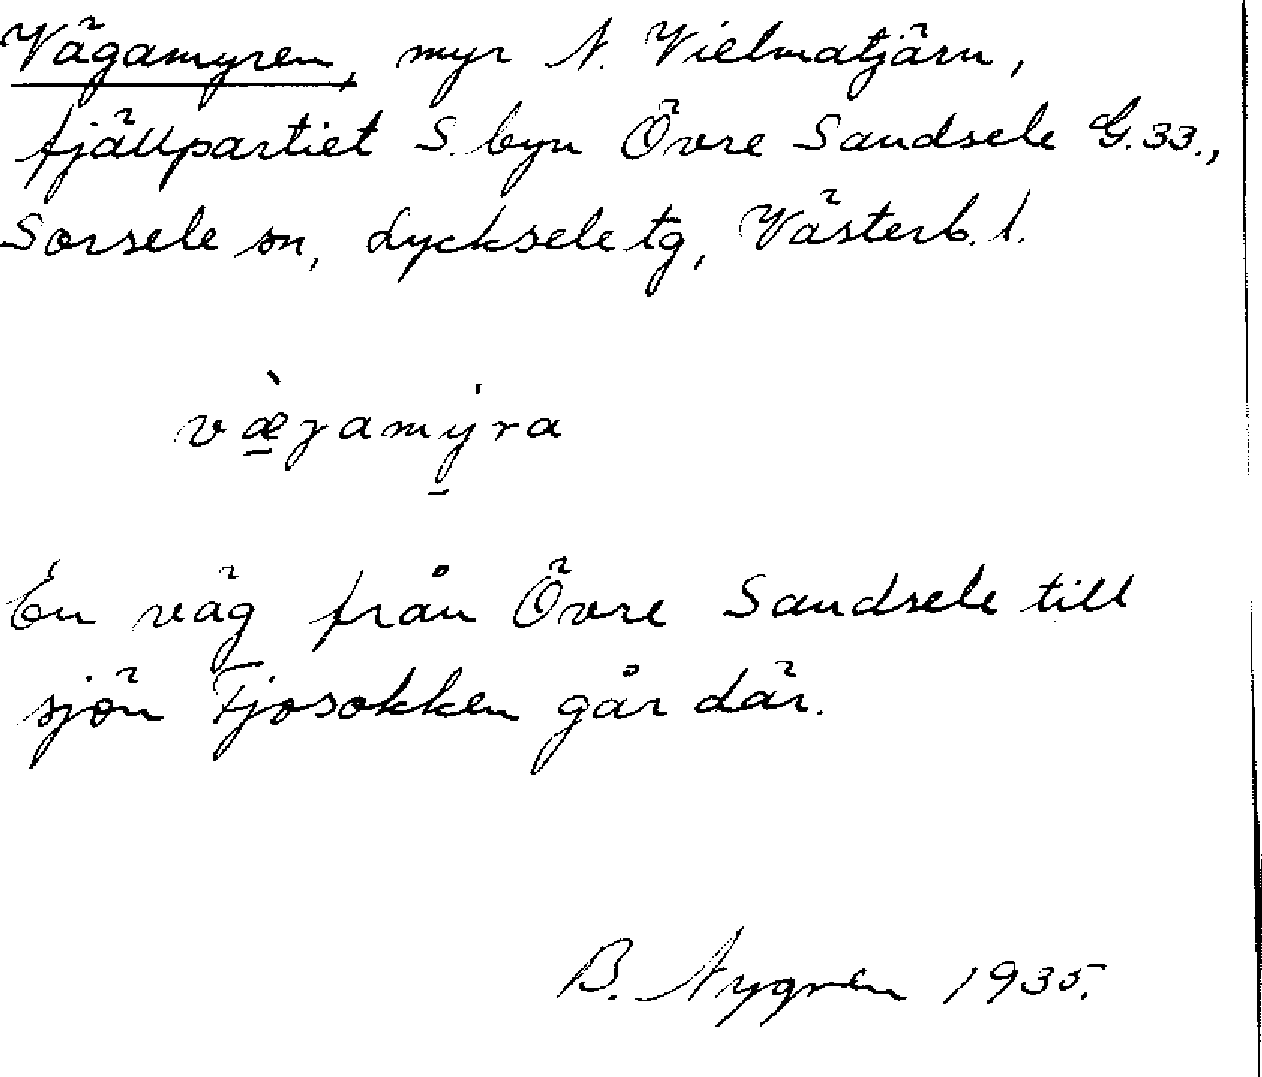 Vägamyren, myr N. Vielmatjärn,
fjällpartiet S. byn Övre Sandsele G.33.,
Sorsele sn, Lycksele tg, Västerb. l.
væ̠̀gamy̠̍ra
En väg från Övre Sandsele till
sjön Fjosokken går där.
B. Nygren 1935.